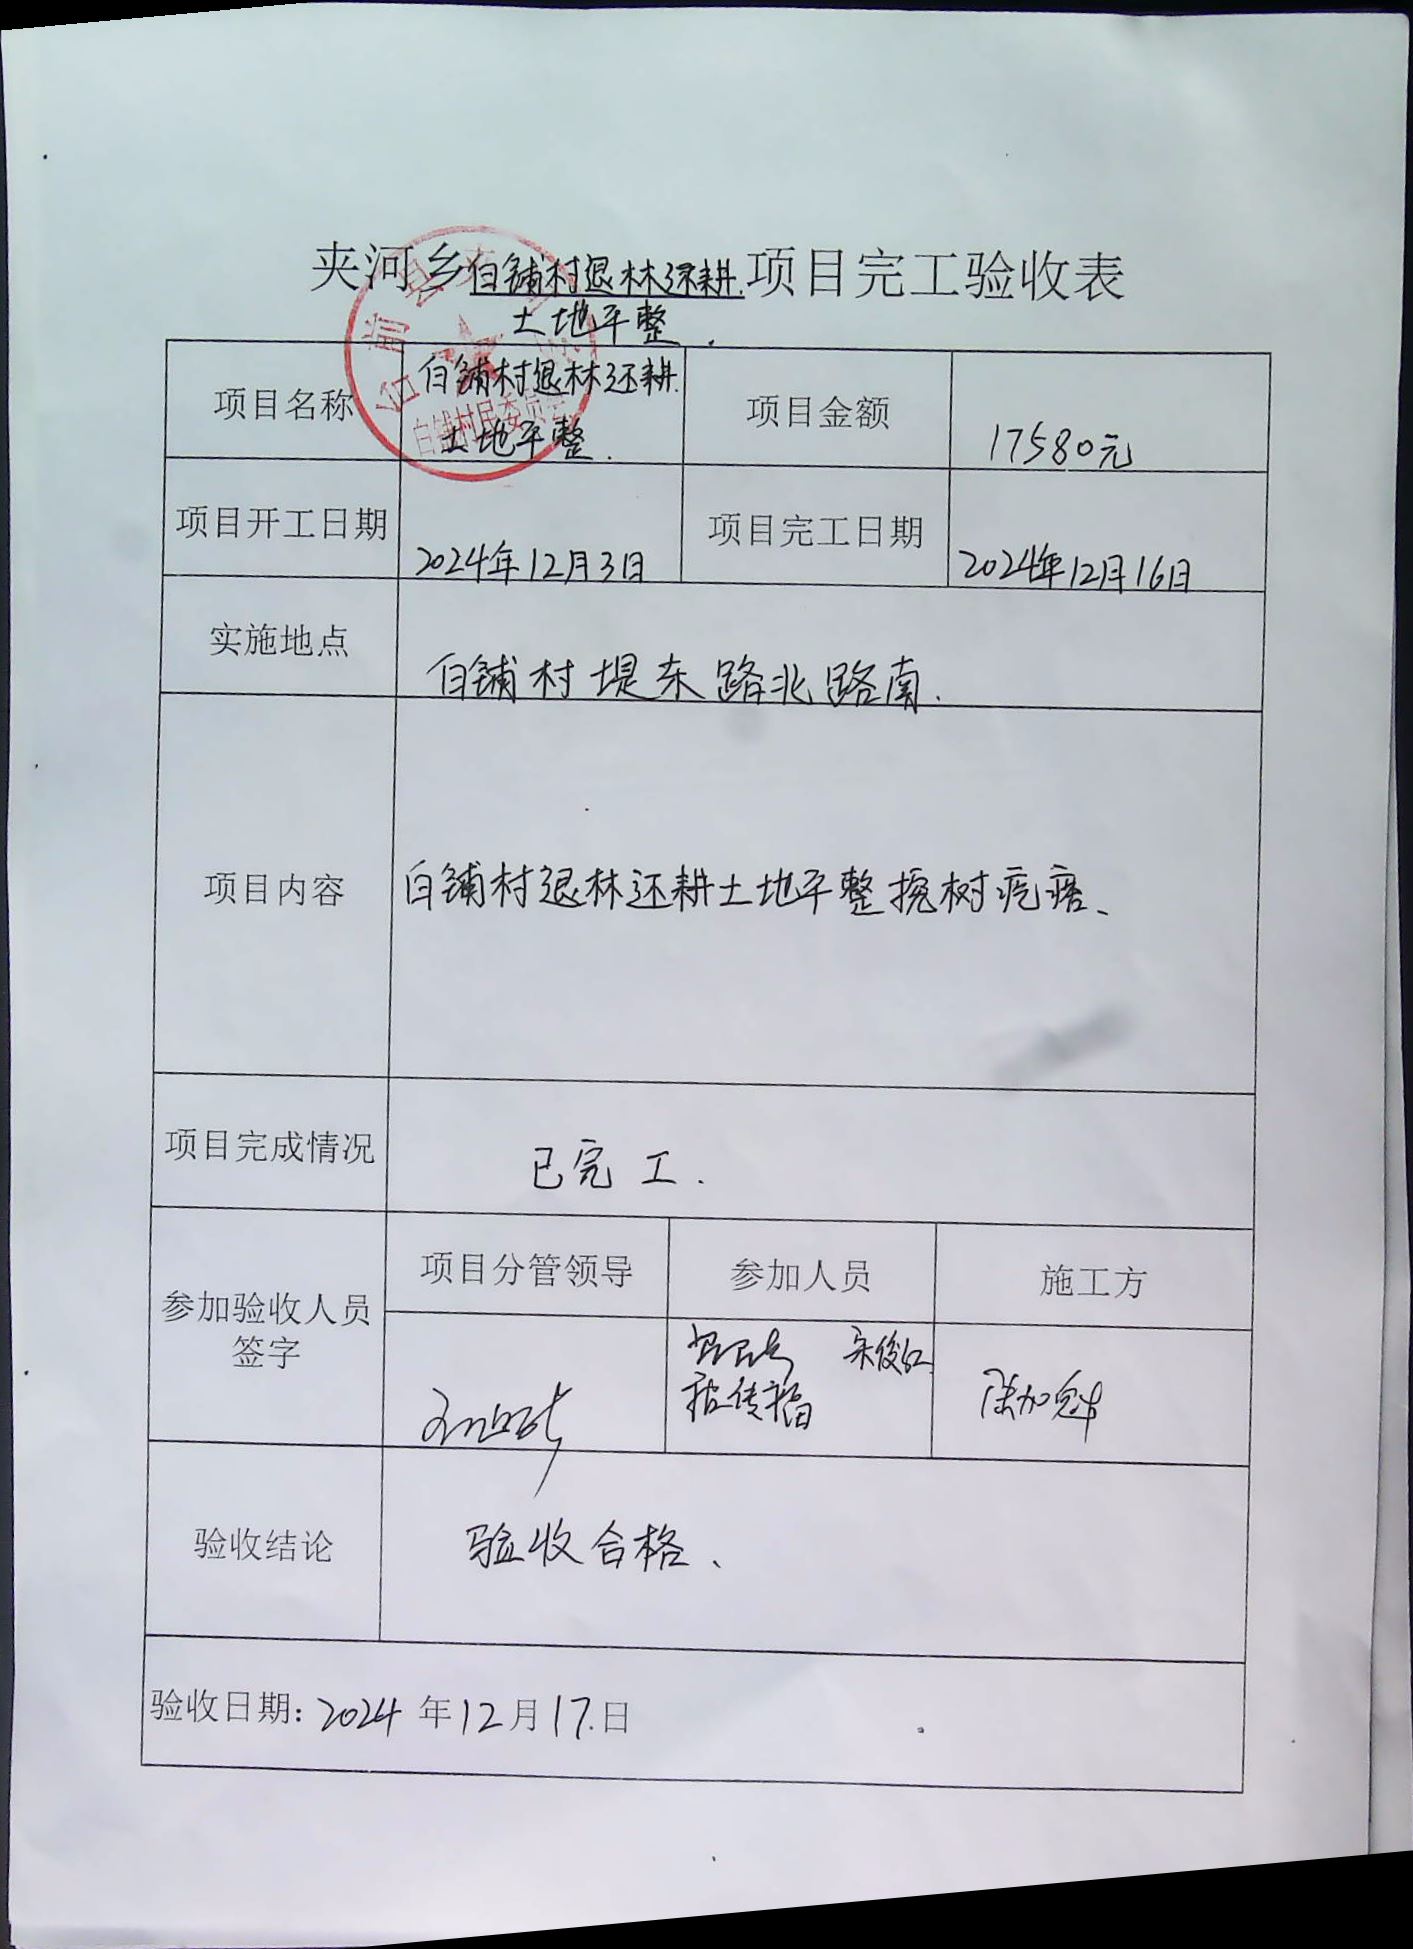 夹河乡白铺村退林还耕项目完工验收表
土地平整.
项目名称 白铺村退林还耕 项目金额 17580元
土地平整.
台前县夹
白铺村民委员会
项目开工日期 2024年12月3日 项目完工日期 2024年12月16日
实施地点 白铺村堤东路北路南.
项目内容 白铺村退林还耕土地平整挖树疙瘩、
项目完成情况 已完工.
参加验收人员
签字
项目分管领导 参加人员 施工方
宋俊红
验收结论 验收合格、
验收日期: 2024 年12月17.日